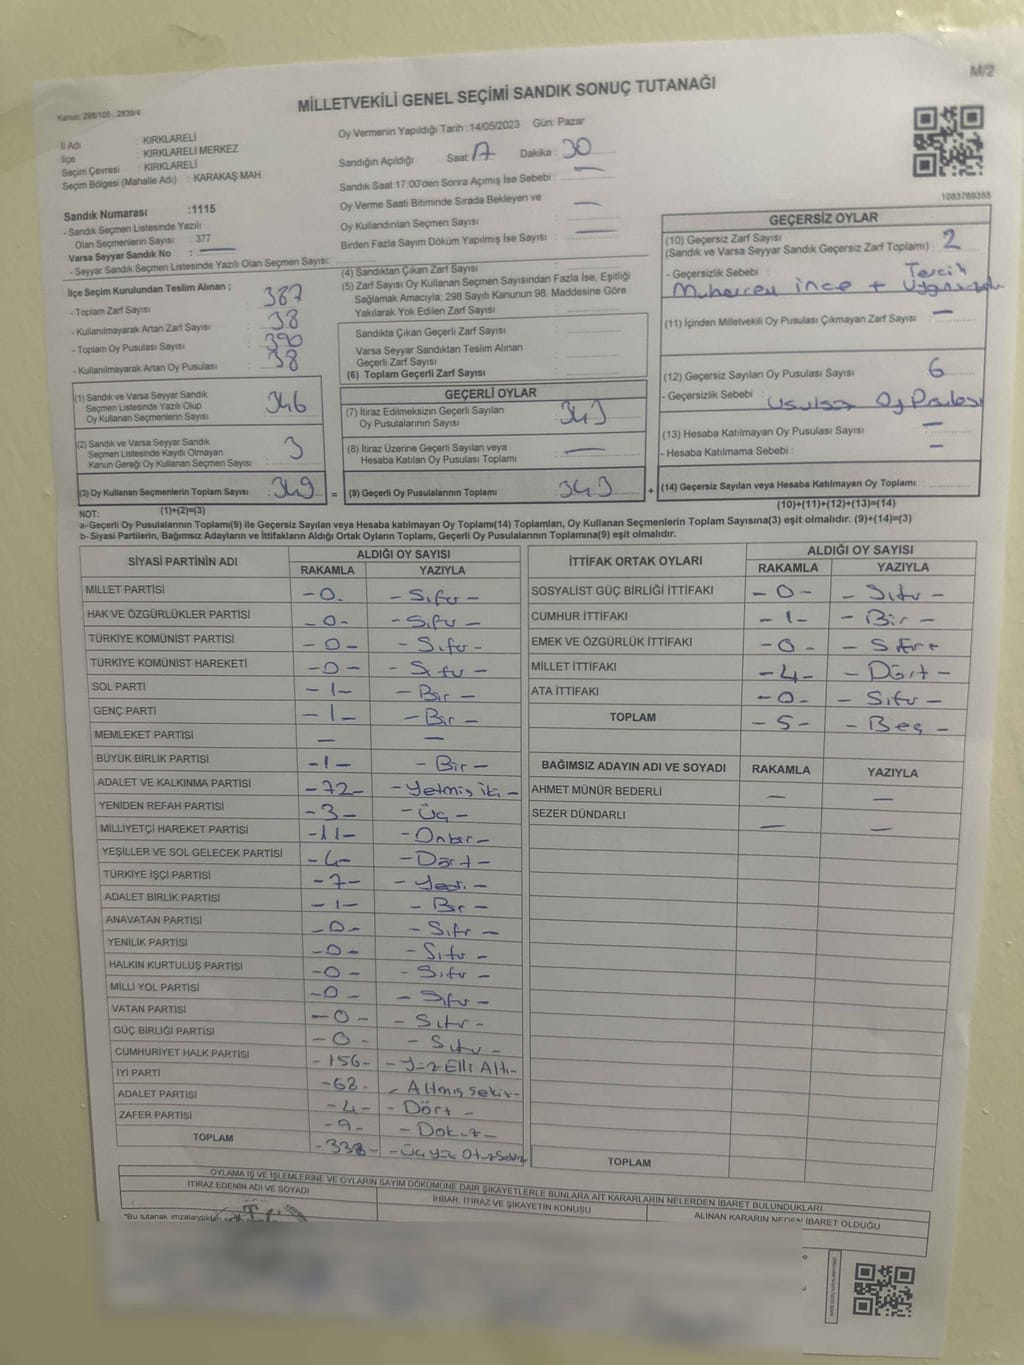 M/2
Kanun: 298/105 , 2839/4
MİLLETVEKİLİ GENEL SEÇİMİ SANDIK SONUÇ TUTANAĞI
İl Adı : KIRKLARELİ
İlçe : KIRKLARELİ MERKEZ
Seçim Çevresi : KIRKLARELİ
Seçim Bölgesi (Mahalle Adı) : KARAKAŞ MAH.
Sandık Numarası :1115
- Sandık Seçmen Listesinde Yazılı
Olan Seçmenlerin Sayısı : 377
Varsa Seyyar Sandık No :
- Seyyar Sandık Seçmen Listesinde Yazılı Olan Seçmen Sayısı:
Oy Vermenin Yapıldığı Tarih :14/05/2023 Gün: Pazar
Sandığın Açıldığı Saat: 17 Dakika : 30
Sandık Saat 17:00'den Sonra Açımış İse Sebebi : —
Oy Verme Saati Bitiminde Sırada Bekleyen ve
Oy Kullandırılan Seçmen Sayısı : —
Birden Fazla Sayım Döküm Yapılmış İse Sayısı : —
1083769355
İlçe Seçim Kurulundan Teslim Alınan ;
- Toplam Zarf Sayısı : 387
- Kullanılmayarak Artan Zarf Sayısı : 38
- Toplam Oy Pusulası Sayısı : 390
- Kullanılmayarak Artan Oy Pusulası : 38
(1) Sandık ve Varsa Seyyar Sandık
Seçmen Listesinde Yazılı Olup
Oy Kullanan Seçmenlerin Sayısı : 346
(2) Sandık ve Varsa Seyyar Sandık
Seçmen Listesinde Kayıtlı Olmayan
Kanun Gereği Oy Kullanan Seçmen Sayısı : 3
(3) Oy Kullanan Seçmenlerin Toplam Sayısı : 349 =
(1)+(2)=(3)
(4) Sandıktan Çıkan Zarf Sayısı :
(5) Zarf Sayısı Oy Kullanan Seçmen Sayısından Fazla İse, Eşitliği
Sağlamak Amacıyla; 298 Sayılı Kanunun 98. Maddesine Göre
Yakılarak Yok Edilen Zarf Sayısı :
Sandıkta Çıkan Geçerli Zarf Sayısı :
Varsa Seyyar Sandıktan Teslim Alınan
Geçerli Zarf Sayısı :
(6) Toplam Geçerli Zarf Sayısı :
GEÇERLİ OYLAR
(7) İtiraz Edilmeksizin Geçerli Sayılan
Oy Pusulalarının Sayısı : 343
(8) İtiraz Üzerine Geçerli Sayılan veya
Hesaba Katılan Oy Pusulası Toplamı : —
(9) Geçerli Oy Pusulalarının Toplamı : 343 +
GEÇERSİZ OYLAR
(10) Geçersiz Zarf Sayısı
(Sandık ve Varsa Seyyar Sandık Geçersiz Zarf Toplamı) : 2
- Geçersizlik Sebebi : Tercih
Muharrem ince +
(11) İçinden Milletvekili Oy Pusulası Çıkmayan Zarf Sayısı : —
(12) Geçersiz Sayılan Oy Pusulası Sayısı : 6
- Geçersizlik Sebebi : Usulsüz Oy Pusulası
(13) Hesaba Katılmayan Oy Pusulası Sayısı : —
- Hesaba Katılmama Sebebi : —
(14) Geçersiz Sayılan veya Hesaba Katılmayan Oy Toplamı :
(10)+(11)+(12)+(13)=(14)
NOT:
a- Geçerli Oy Pusulalarının Toplamı(9) ile Geçersiz Sayılan veya Hesaba katılmayan Oy Toplamı(14) Toplamları, Oy Kullanan Seçmenlerin Toplam Sayısına(3) eşit olmalıdır. (9)+(14)=(3)
b- Siyasi Partilerin, Bağımsız Adayların ve İttifakların Aldığı Ortak Oyların Toplamı, Geçerli Oy Pusulalarının Toplamına(9) eşit olmalıdır.
SİYASİ PARTİNİN ADI ALDIĞI OY SAYISI
RAKAMLA YAZIYLA
MİLLET PARTİSİ -0. -Sıfır-
HAK VE ÖZGÜRLÜKLER PARTİSİ -0- -Sıfır-
TÜRKİYE KOMÜNİST PARTİSİ -0- -Sıfır-
TÜRKİYE KOMÜNİST HAREKETİ -0- -Sıfır-
SOL PARTİ -1- -Bir-
GENÇ PARTİ -1- -Bir-
MEMLEKET PARTİSİ — —
BÜYÜK BİRLİK PARTİSİ -1- -Bir-
ADALET VE KALKINMA PARTİSİ -72- -Yetmiş iki-
YENİDEN REFAH PARTİSİ -3- -Üç-
MİLLİYETÇİ HAREKET PARTİSİ -11- -Onbir-
YEŞİLLER VE SOL GELECEK PARTİSİ -4- -Dört-
TÜRKİYE İŞÇİ PARTİSİ -7- -Yedi-
ADALET BİRLİK PARTİSİ -1- -Bir-
ANAVATAN PARTİSİ -0- -Sıfır-
YENİLİK PARTİSİ -0- -Sıfır-
HALKIN KURTULUŞ PARTİSİ -0- -Sıfır-
MİLLİ YOL PARTİSİ -0- -Sıfır-
VATAN PARTİSİ -0- -Sıfır-
GÜÇ BİRLİĞİ PARTİSİ -0- -Sıfır-
CUMHURİYET HALK PARTİSİ -156- -Yüz Elli Altı-
İYİ PARTİ -68- -Altmış sekiz-
ADALET PARTİSİ -4- -Dört-
ZAFER PARTİSİ -9- -Dokuz-
TOPLAM -338- -Üçyüz Otuzsekiz
İTTİFAK ORTAK OYLARI ALDIĞI OY SAYISI
RAKAMLA YAZIYLA
SOSYALİST GÜÇ BİRLİĞİ İTTİFAKI -0- -Sıfır-
CUMHUR İTTİFAKI -1- -Bir-
EMEK VE ÖZGÜRLÜK İTTİFAKI -0- -Sıfır
MİLLET İTTİFAKI -4- -Dört-
ATA İTTİFAKI -0- -Sıfır-
TOPLAM -5- -Beş-
BAĞIMSIZ ADAYIN ADI VE SOYADI RAKAMLA YAZIYLA
AHMET MÜNÜR BEDERLİ — —
SEZER DÜNDARLI — —
TOPLAM
OYLAMA İŞ VE İŞLEMLERİNE VE OYLARIN SAYIM DÖKÜMÜNE DAİR ŞİKAYETLERLE BUNLARA AİT KARARLARIN NELERDEN İBARET BULUNDUKLARI
İTİRAZ EDENİN ADI VE SOYADI İHBAR, İTİRAZ VE ŞİKAYETİN KONUSU ALINAN KARARIN NEDEN İBARET OLDUĞU
"Bu tutanak imzalandıktan